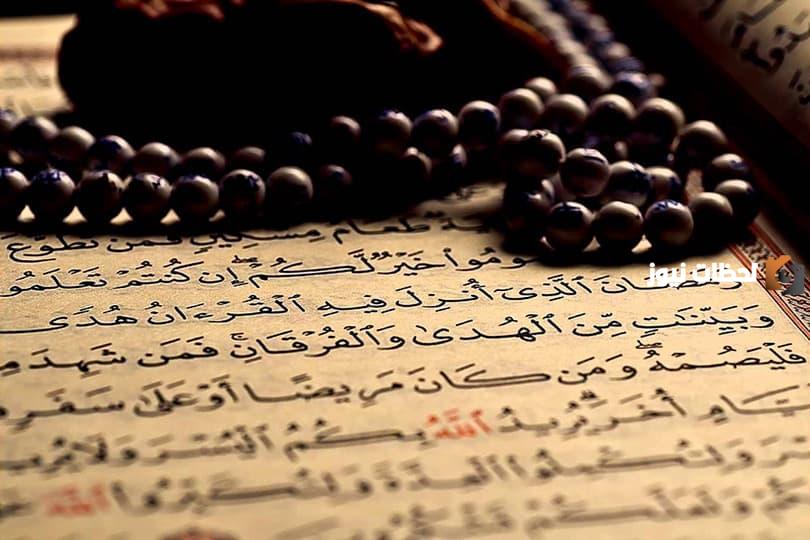 طَعَامُ مِسْكِينٍ فَمَن تَطَوَّعَ
خَيْرٌ لَّكُمْ إِن كُنتُمْ تَعْلَمُو
ٱلَّذِىٓ أُنزِلَ فِيهِ ٱلْقُرْءَانُ هُدًى
وَبَيِّنَٰتٍ مِّنَ ٱلْهُدَىٰ وَٱلْفُرْقَانِ فَمَن شَهِدَ
فَلْيَصُمْهُ وَمَن كَانَ مَرِيضًا أَوْ عَلَىٰ سَفَرٍ
أُخَرَ يُرِيدُ ٱللَّهُ بِكُمُ ٱلْيُسْرَ وَلَا يُرِيدُ
وَلِتُكْمِلُوا۟ ٱلْعِدَّةَ وَلِتُكَبِّرُوا۟ ٱللَّهَ
وَلَعَلَّكُمْ
لحظات نيوز